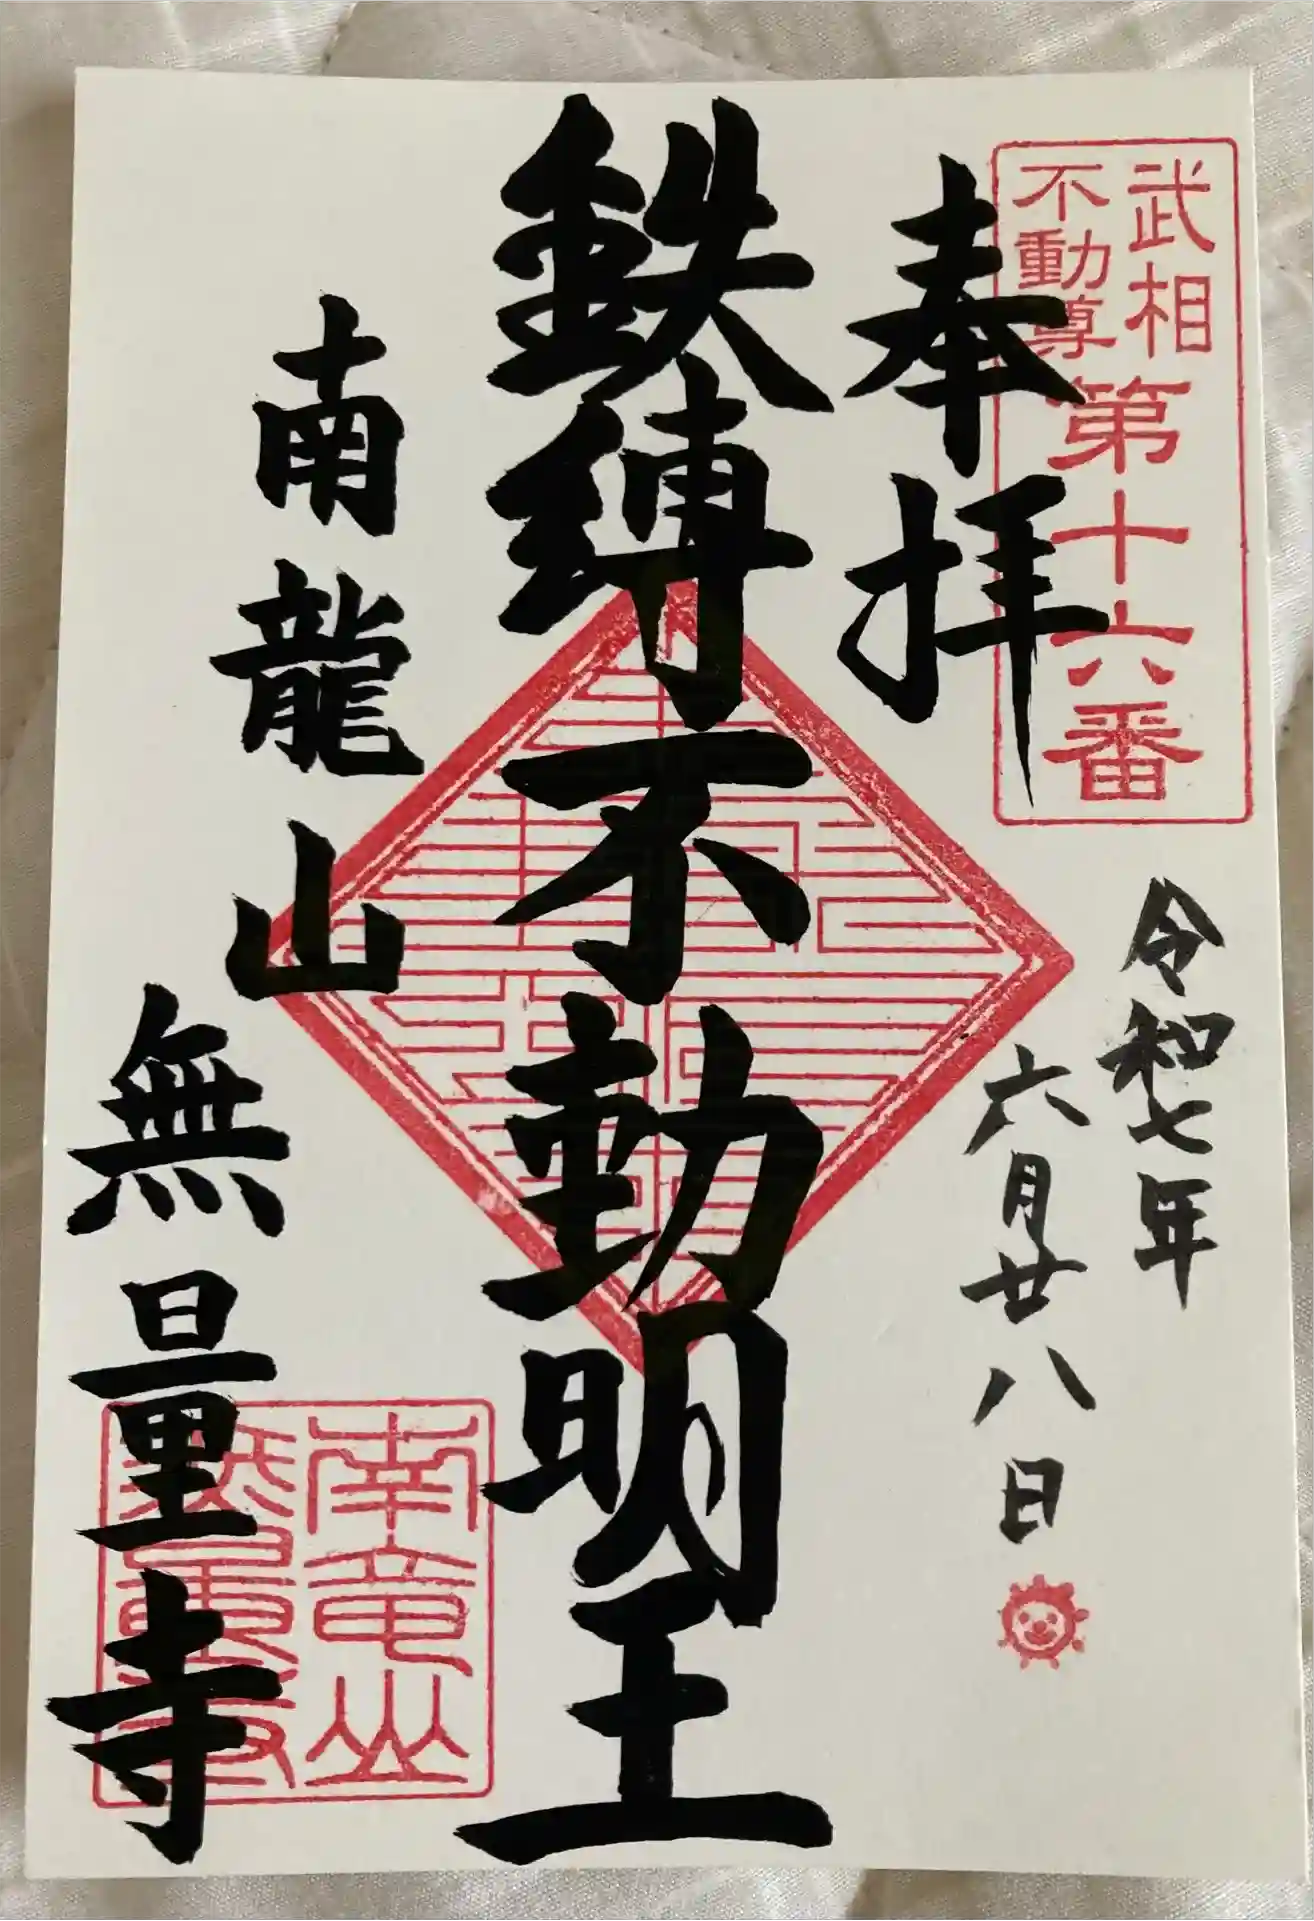 武相
不動尊
第十六番
奉拝
令和七年
六月廿八日
鉄縛不動明王
南龍山
無量寺
南竜山